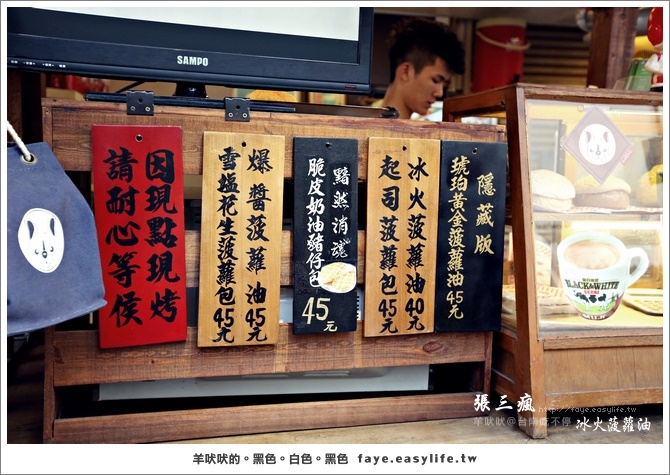 SAMPO
因現點現烤
請耐心等侯
爆醬菠蘿油45元
雪塩花生菠蘿包45元
黯然消魂
脆皮奶油豬仔包
45元
冰火菠蘿油40元
起司菠蘿包45元
隱藏版
琥珀黃金菠蘿油45元
BLACK&WHITE
張三瘋
http://faye.easylife.tw
羊吠吠@台南吃不停
冰火菠蘿油
羊吠吠的。黑色。白色。黑色 faye.easylife.tw